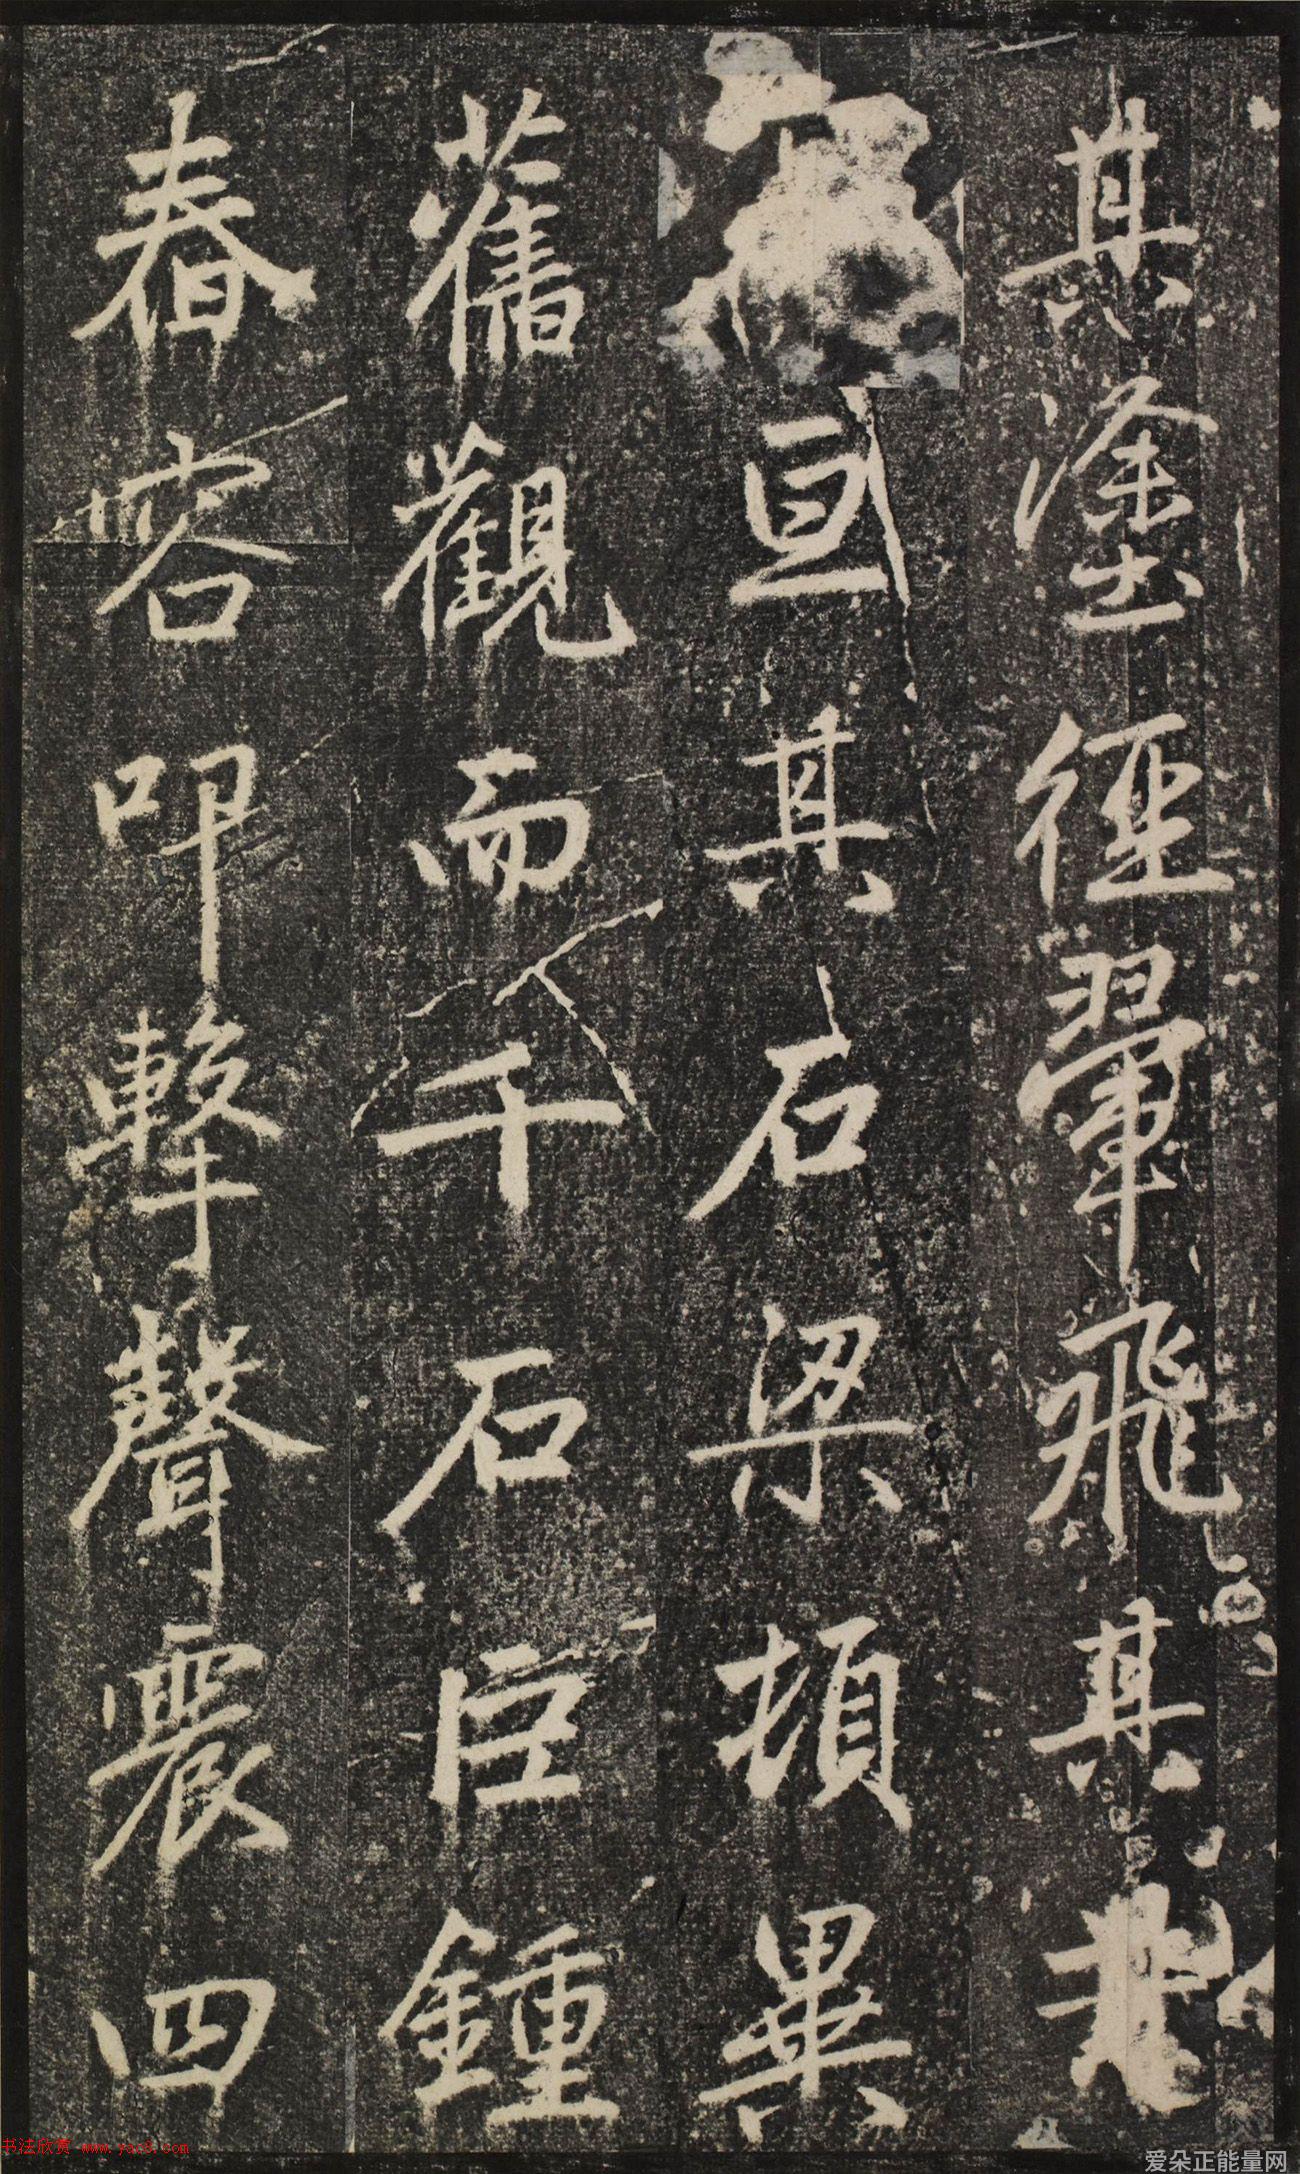 其塗徑翬飛其
亘其石梁頓異
舊觀而千石巨鍾
舂容叩擊聲震四
书法欣赏 www.yac8.com
爱朵正能量网